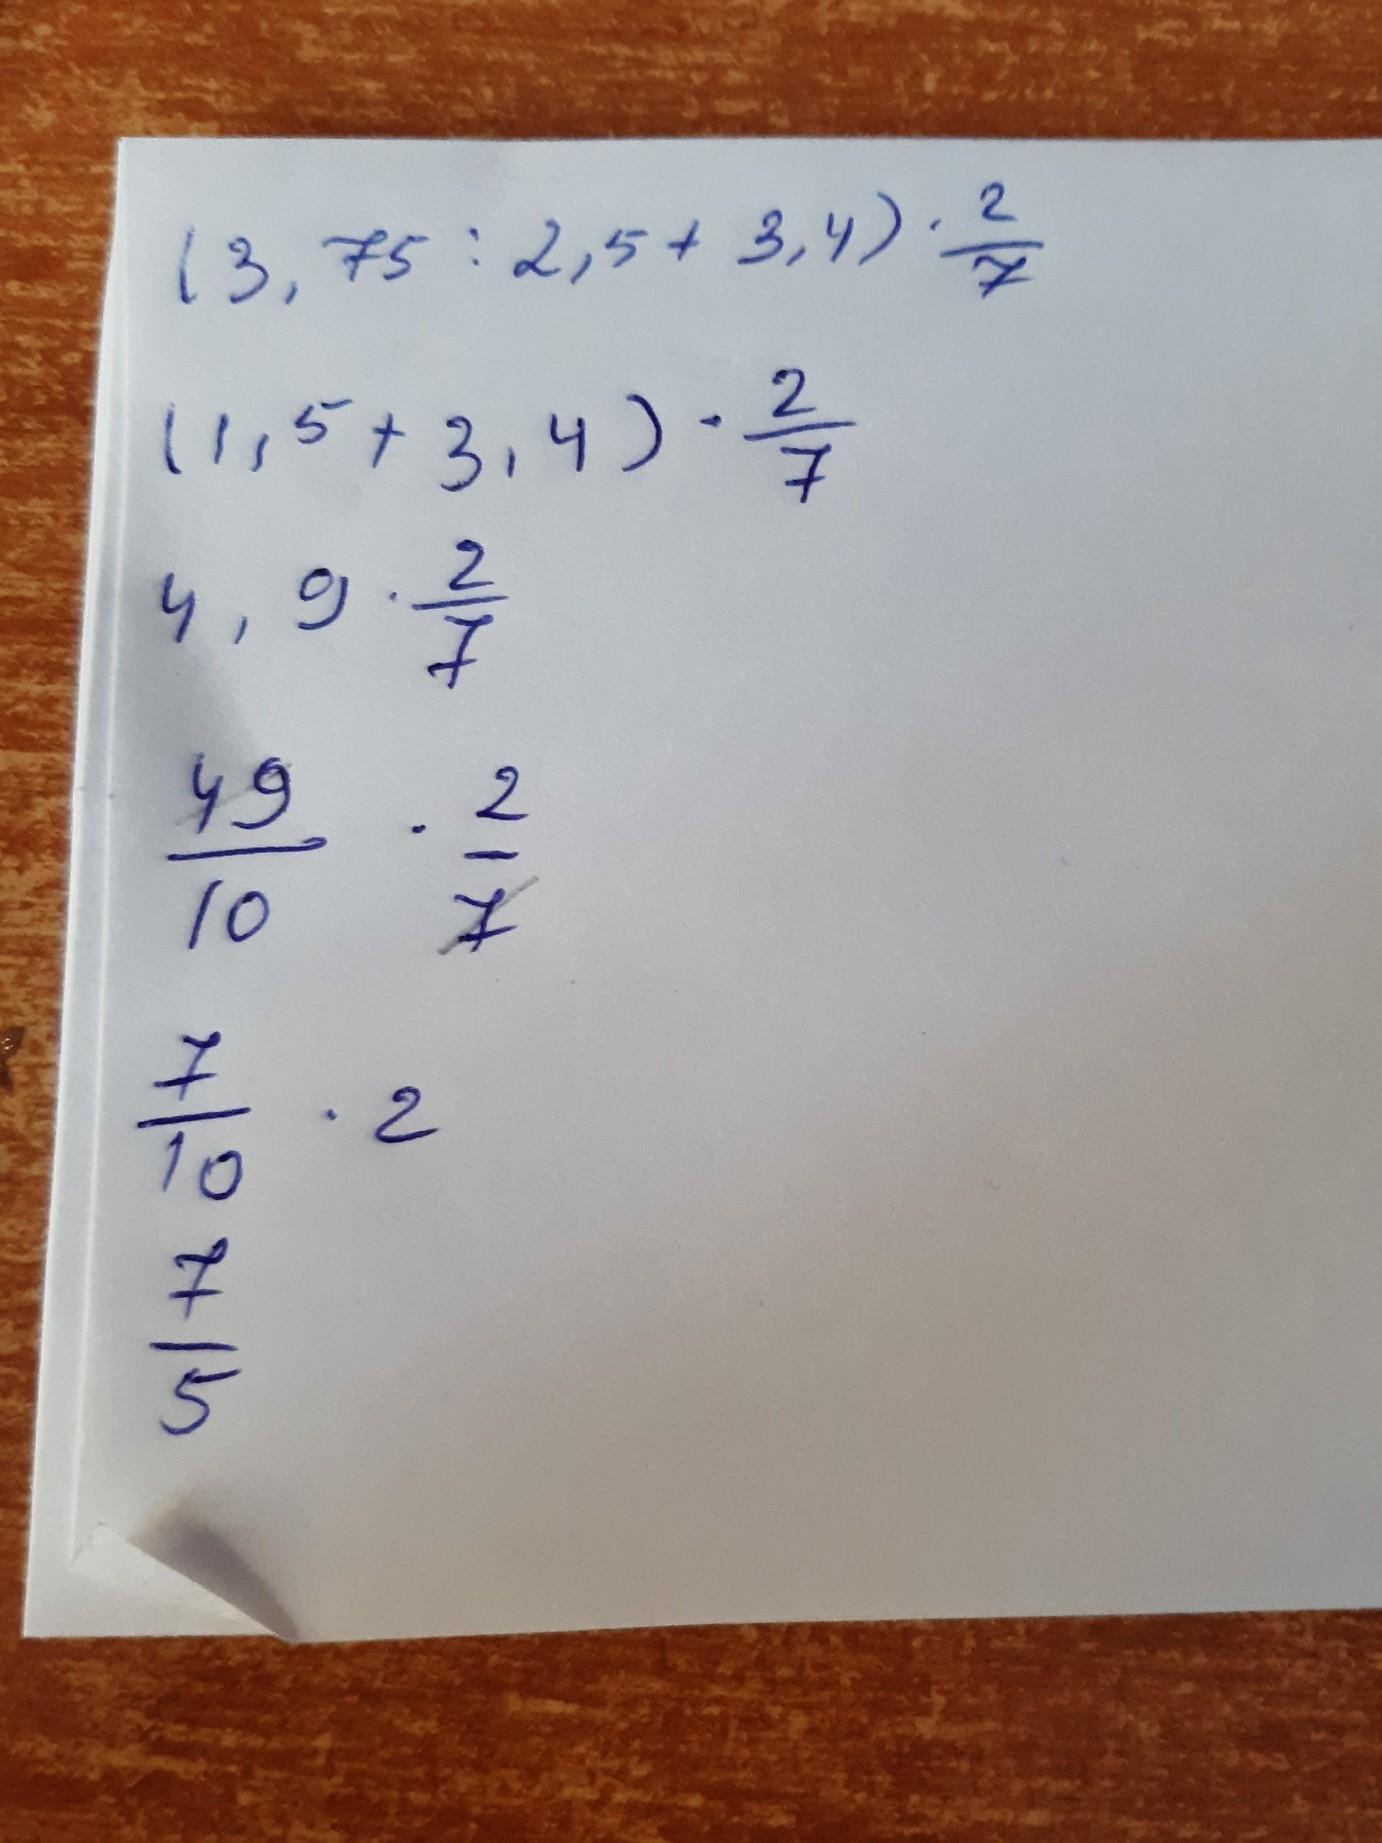 (3,75 : 2,5 + 3,4) · 2/7
(1,5 + 3,4) · 2/7
4,9 · 2/7
49/10 · 2/7
7/10 · 2
7/5